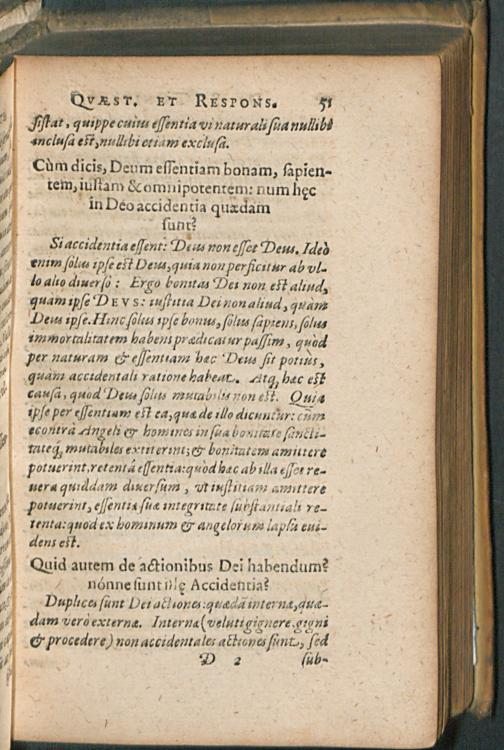 QVÆST. ET RESPONS. 51
sistat, quippe cuius essentia vi naturali sua nullibi
inclusa est, nullibi etiam exclusa.
Cùm dicis, Deum essentiam bonam, sapien-
tem, iustam & omnipotentem: num hęc
in Deo accidentia quædam
sunt?
Si accidentia essent: Deus non esset Deus. Ideò
enim solus ipse est Deus, quia non perficitur ab vl-
lo alio diuerso: Ergo bonitas Dei non est aliud,
quàm ipse DEVS: iustitia Dei non aliud, quàm
Deus ipse. Hinc solus ipse bonus, solus sapiens, solus
immortalitatem habens prædicatur passim, quòd
per naturam & essentiam hæc Deus sit potiùs,
quàm accidentali ratione habeat. Atq; hæc est
causa, quòd Deus solus mutabilis non est. Quia
ipse per essentium est ea, quæ de illo dicuntur: cùm
econtrà Angeli & homines in sua bonitate sancti-
tateq; mutabiles extiterint; & bonitatem amittere
potuerint, retenta essentia: quòd hæc ab illa esset re-
uera quiddam diuersum, vt iustitiam amittere
potuerint, essentiæ suæ integritate substantiali re-
tenta: quod ex hominum & angelorum lapsu eui-
dens est.
Quid autem de actionibus Dei habendum?
nónne sunt illę Accidentia?
Duplices sunt Dei actiones: quædã internæ, quæ-
dam verò externæ. Internæ (veluti gignere, gigni
& procedere) non accidentales actiones sunt, sed
D 2 sub-